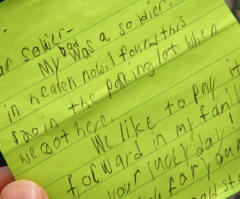 ar soldier-
My dad was a soldier.
in heaven now. I found this
$20 in the parking lot when
we got here. We like to pay it
forward in my family
your lucky day!
for your